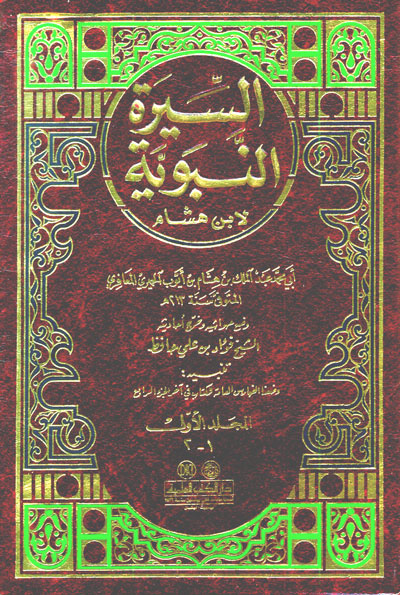 السِّيرَة
النَّبَوِيَّة
لابن هشام
أبي محمد عبد الملك بن هشام بن أيوب الحميري المعافري
المتوفى سنة ٢١٣ هـ
الشيخ فؤاد بن علي حافظ
تنبيه:
وضعنا الفهارس العامة للكتاب في آخر الجزء الرابع
المجلد الأول
١ - ٢
دار الكتب العلمية